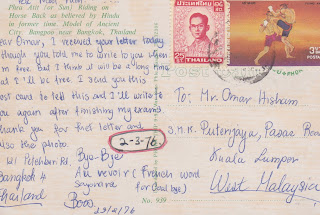 Phra Atit (or Sun) Riding on
Horse Back as believed by Hindu
in former time. Model of Ancient
City, Bangpoo near Bangkok, Thailand
Dear Omar, I received your letter today
though you told me to write to you when
I'm free. But I think it will be a long time
that I'll be free. I send you this
post card to tell this and I'll write to
you again after finishing my exams.
Thank you for that letter and
also the photo.
2-3-76
Bye-Bye
Petchburi Rd,
Au revoir (French word
Bangkok 4
Sayonara for Good bye)
Thailand
Boon
23/2/76
No. 939
POST
ประเทศไทย
THAILAND
To: Mr. Omar Hisham
S.M.K. Puterijaya, Pasar Road
Kuala Lumpur
West Malaysia